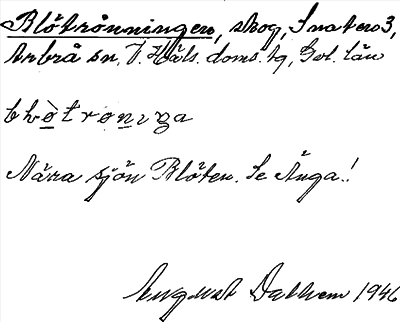 Blötrönningen, skog, Snaten 3,
Arbrå sn, V. Häls. doms. tg, Gvl. län
blö̀trøniŋa
Nära sjön Blöten. Se Ånga!
August Dalhem 1946